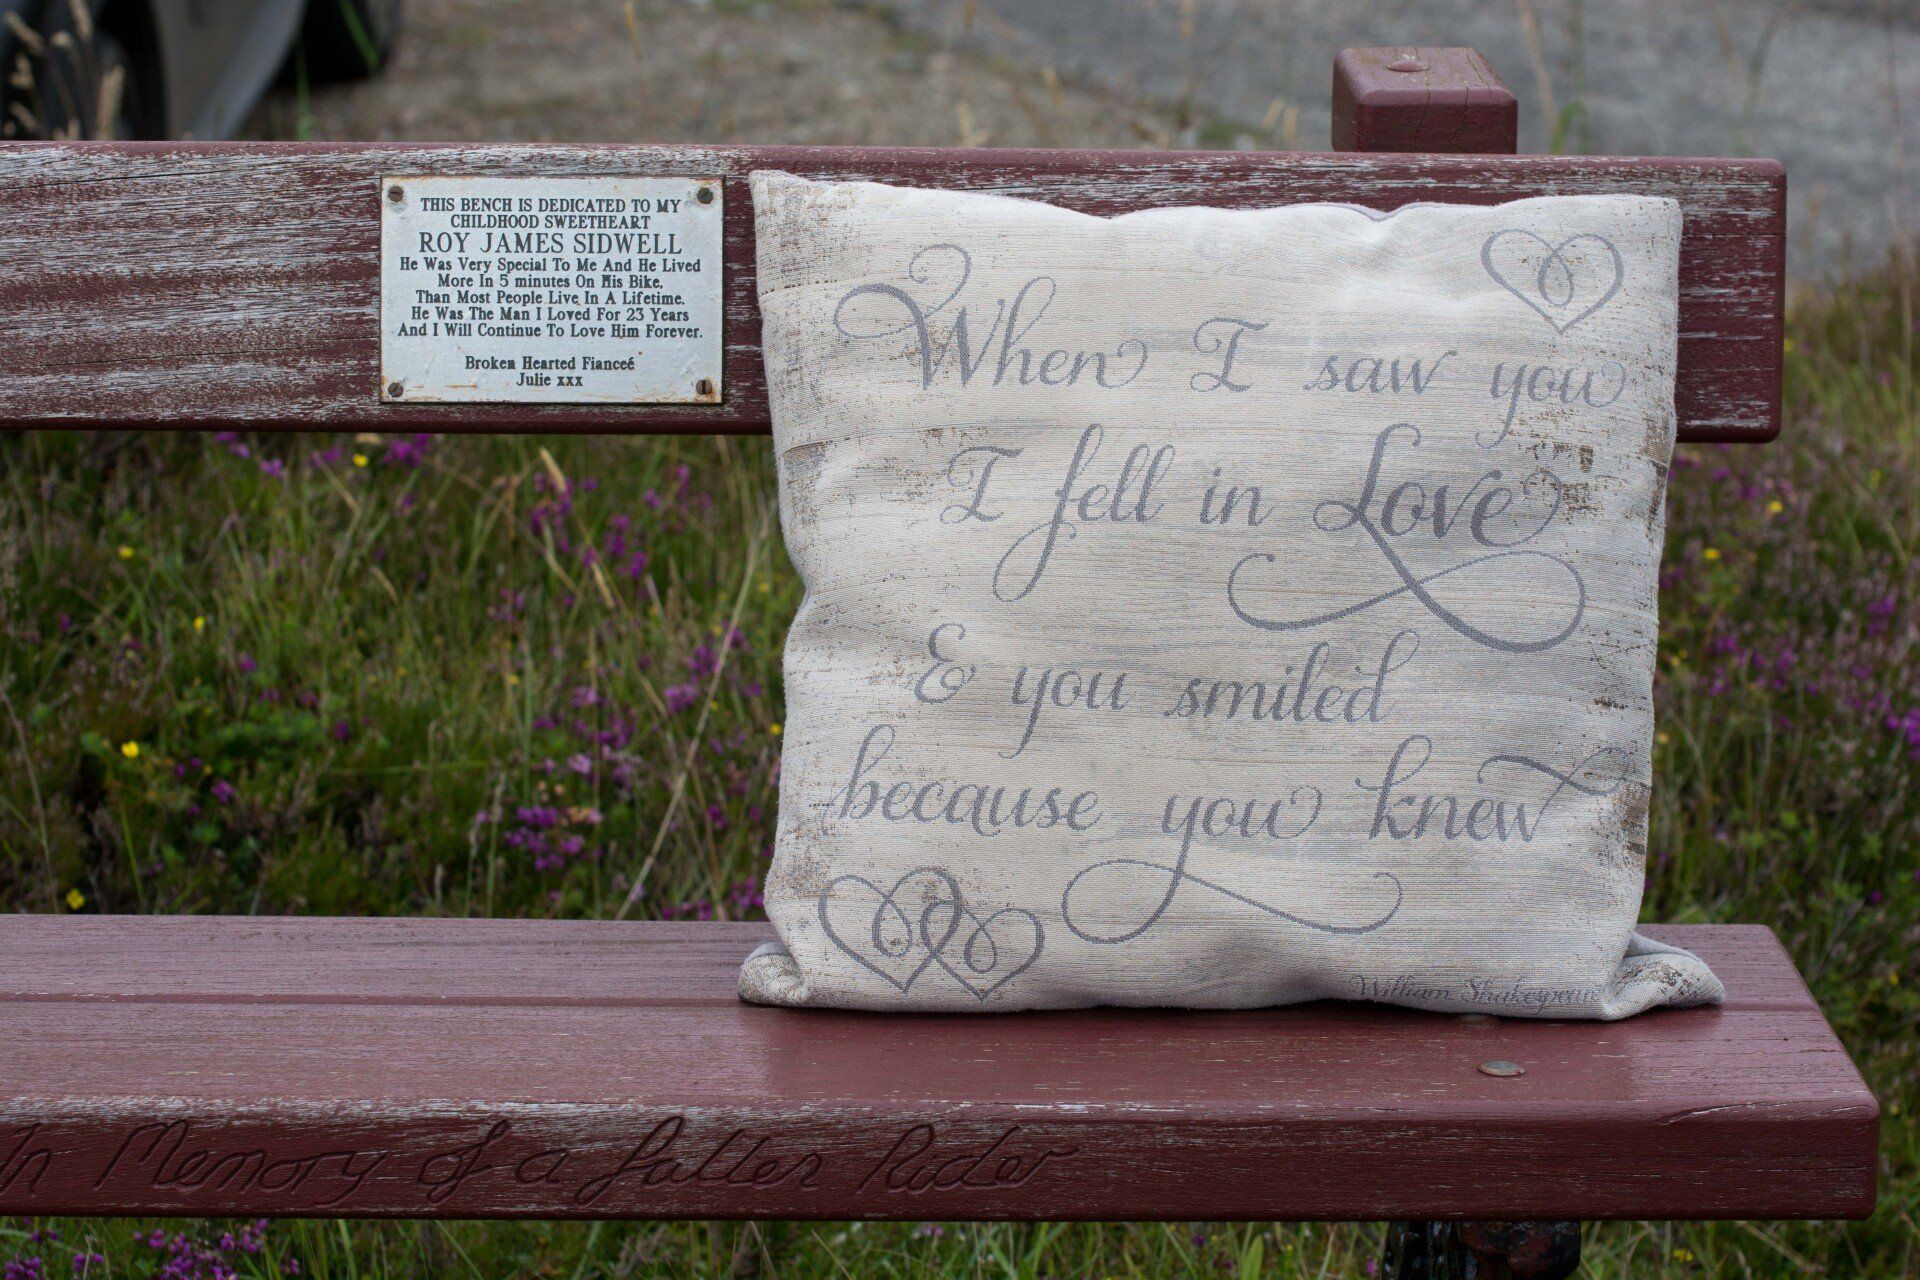 THIS BENCH IS DEDICATED TO MY
CHILDHOOD SWEETHEART
ROY JAMES SIDWELL
He Was Very Special To Me And He Lived
More In 5 minutes On His Bike,
Than Most People Live In A Lifetime.
He Was The Man I Loved For 23 Years
And I Will Continue To Love Him Forever.
Broken Hearted Fianceé
Julie xxx
When I saw you
I fell in Love
& you smiled
because you knew
William Shakespeare
In Memory of a fallen Rider